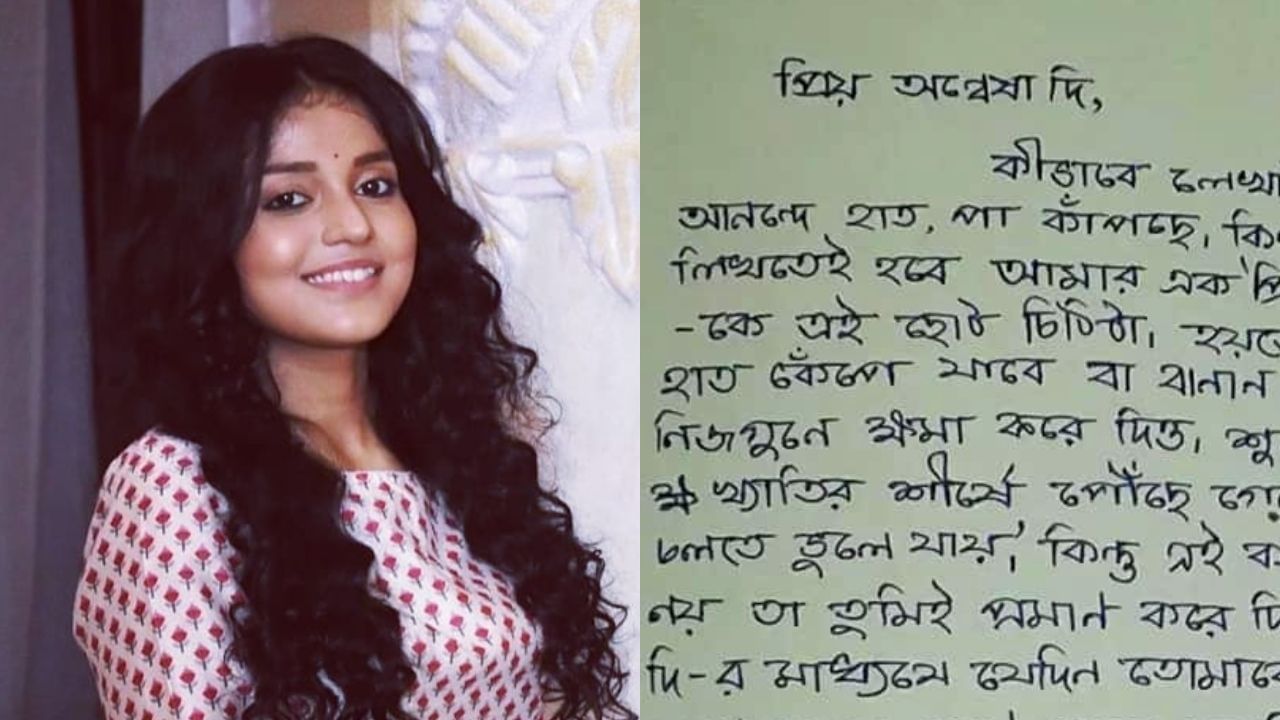 প্রিয় অন্বেষা দি,
কীভাবে লেখা
আনন্দে হাত, পা কাঁপছে,
লিখতেই হবে আমার এক
-কে এই ছোট চিঠিটা,
হাত কেঁপে যাবে বা বানান
নিজগুনে ক্ষমা করে দিও,
খ্যাতির শীর্ষে পৌঁছে
চলতে ভুলে যায়, কিন্তু এই
নয় তা তুমিই প্রমান করে
দি-র মাধ্যমে যেদিন